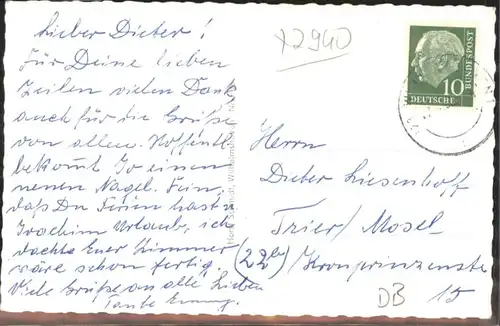 Lieber Dieter!
Für Deine lieben
Zeilen vielen Dank
auch für die Grüße
von allen. Hoffentl.
bekommt Jo einen
neuen Nagel. Fein,
daß Du Ferien hast u.
Joachim Urlaub, ich
dachte Euer Zimmer
wäre schon fertig.
Viele Grüße an alle Lieben
Tante
x2940
10
DEUTSCHE
BUNDESPOST
Herrn
Dieter Liesenhoff
Trier/Mosel
(22b) Kronprinzenstr
15
DB